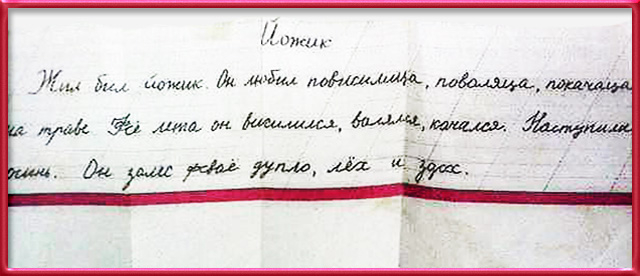 Йожик
Жил бил йожик. Он любил повисилица, поволяца, покачаца
на траве Фсё лета он висилился, валялся, качался. Наступила
осинь. Он залес фсваё дупло, лёх и здох.